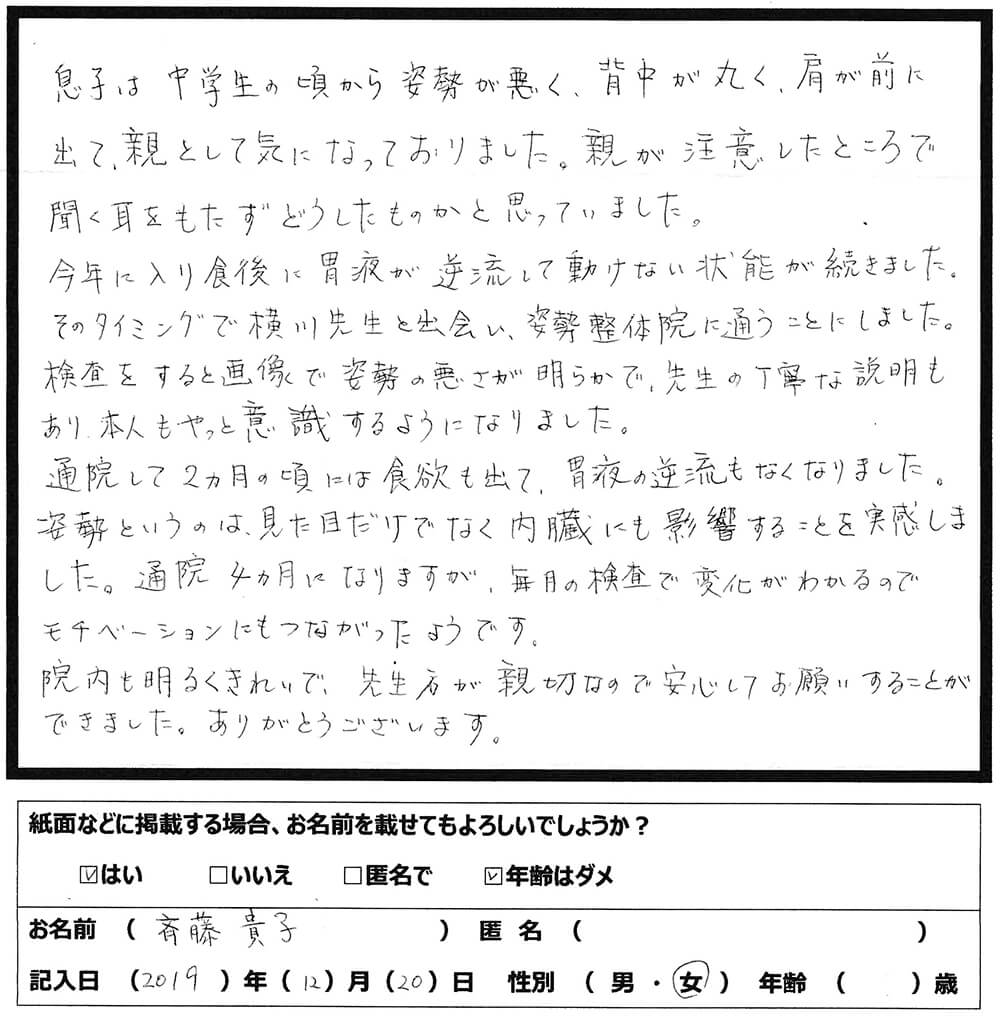 息子は中学生の頃から姿勢が悪く、背中が丸く、肩が前に
出て、親として気になっておりました。親が注意したところで
聞く耳をもたずどうしたものかと思っていました。
今年に入り食後に胃液が逆流して動けない状態が続きました。
そのタイミングで横川先生と出会い、姿勢整体院に通うことにしました。
検査をすると画像で姿勢の悪さが明らかで、先生の丁寧な説明も
あり、本人もやっと意識するようになりました。
通院して2ヵ月の頃には食欲も出て、胃液の逆流もなくなりました。
姿勢というのは、見た目だけでなく内臓にも影響することを実感しま
した。通院4ヵ月になりますが、毎月の検査で変化がわかるので
モチベーションにもつながったようです。
院内も明るくきれいで、先生方が親切なので安心してお願いすることが
できました。ありがとうございます。
紙面などに掲載する場合、お名前を載せてもよろしいでしょうか？
☑はい □いいえ □匿名で ☑年齢はダメ
お名前 （ 斉藤 貴子 ） 匿 名 （ ）
記入日 （2019）年（12）月（20）日 性別 （ 男 ・ 女 ） 年齢 （ ）歳